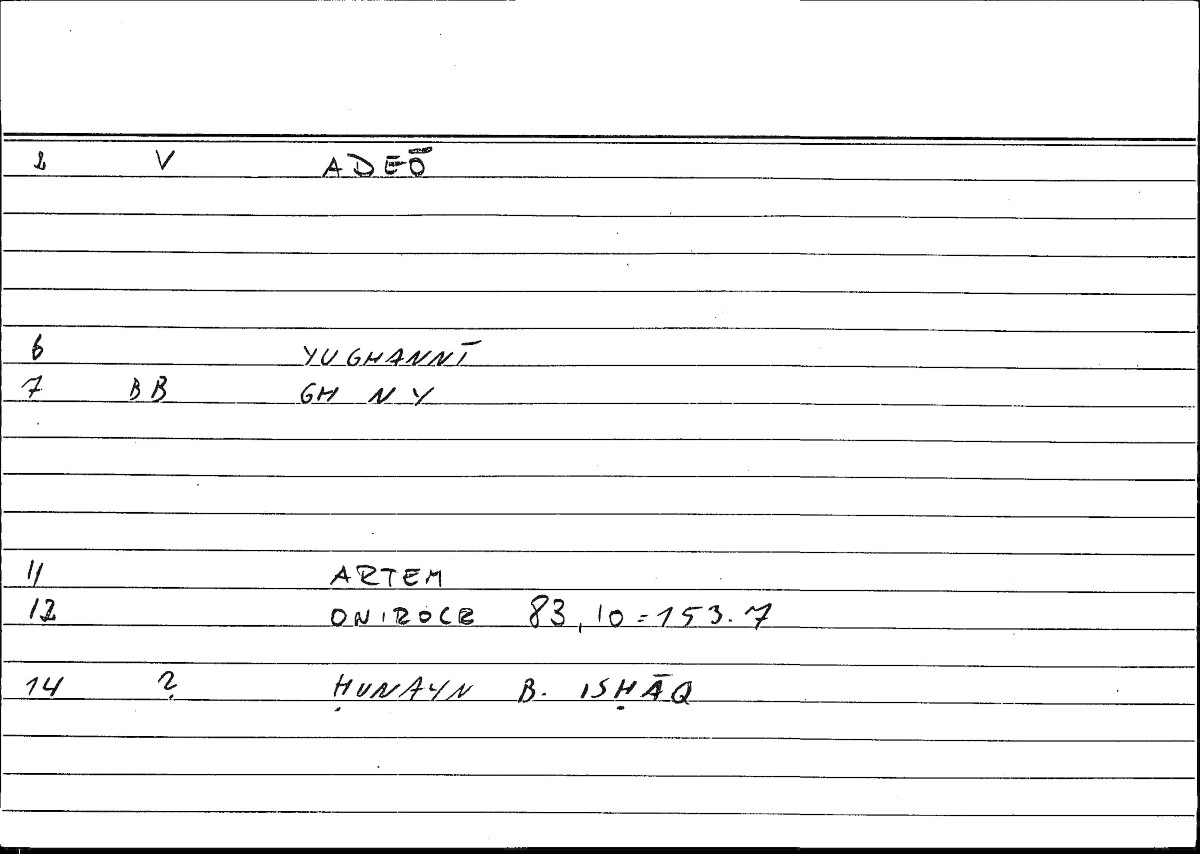 2 V ADEŌ
6 YUGHANNĪ
7 BB GH N Y
11 ARTEM
12 ONIROCR 83,10=153.7
14 ? ḤUNAYN B. ISḤĀQ